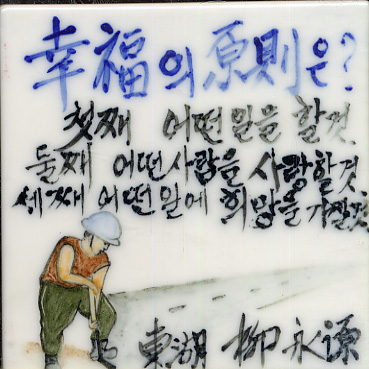 幸福의 原則은?
첫째 어떤 일을 할것.
둘째 어떤 사람을 사랑할것.
세째 어떤 일에 희망을 가질것.
東湖 柳永謙